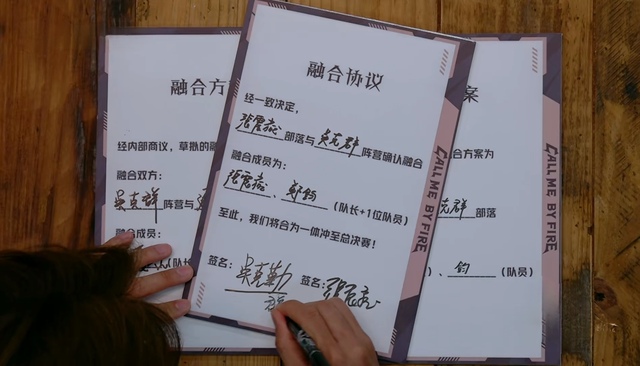 融合方
经内部商议，草拟的融
融合双方：
吴克群阵营与
融合成员：
融合协议
经一致决定，
张震岳部落与吴克群阵营确认融合
融合成员为：
张震岳、郑钧（队长+1位队员）
至此，我们将合为一体冲至总决赛！
签名：吴克勤 签名：张震岳
CALL ME BY FIRE
案
合方案为
克群部落
、钧（队员）
CALL ME BY FIRE